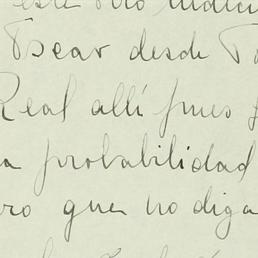 este
Oscar desde
Real allí pues
a probabilidad
ro que no diga